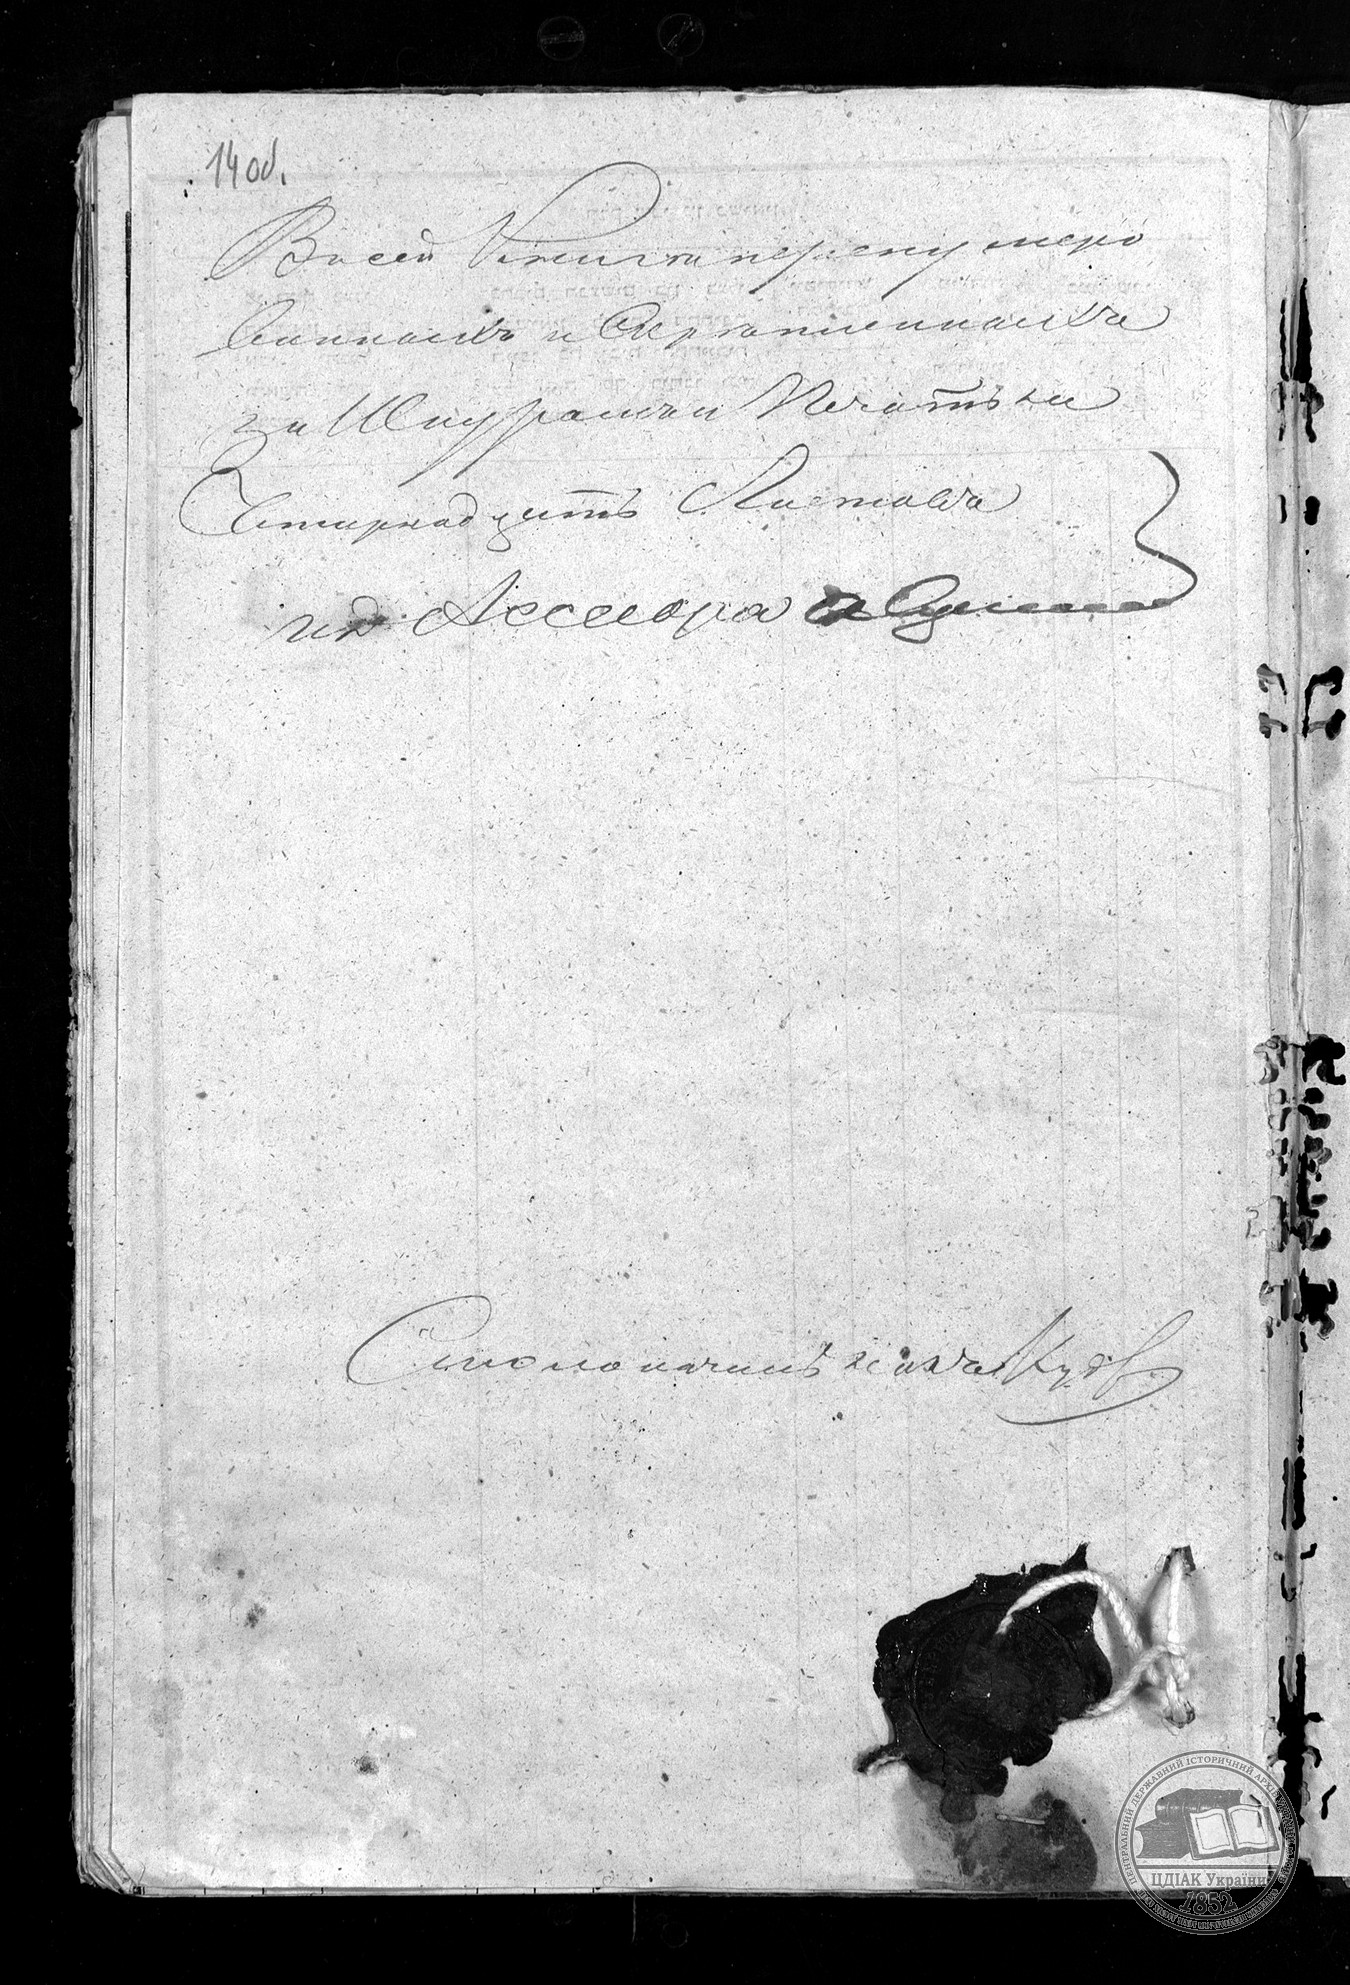 14 об.
В сей Книги перенумеро
ванныхъ и скрепленныхъ
за Шнуромъ и Печатью
Четырнадцать Листовъ
И д Ассесора
Столоначальникъ
ЦЕНТРАЛЬНИЙ ДЕРЖАВНИЙ ІСТОРИЧНИЙ АРХІВ
ЦДІАК України
1852